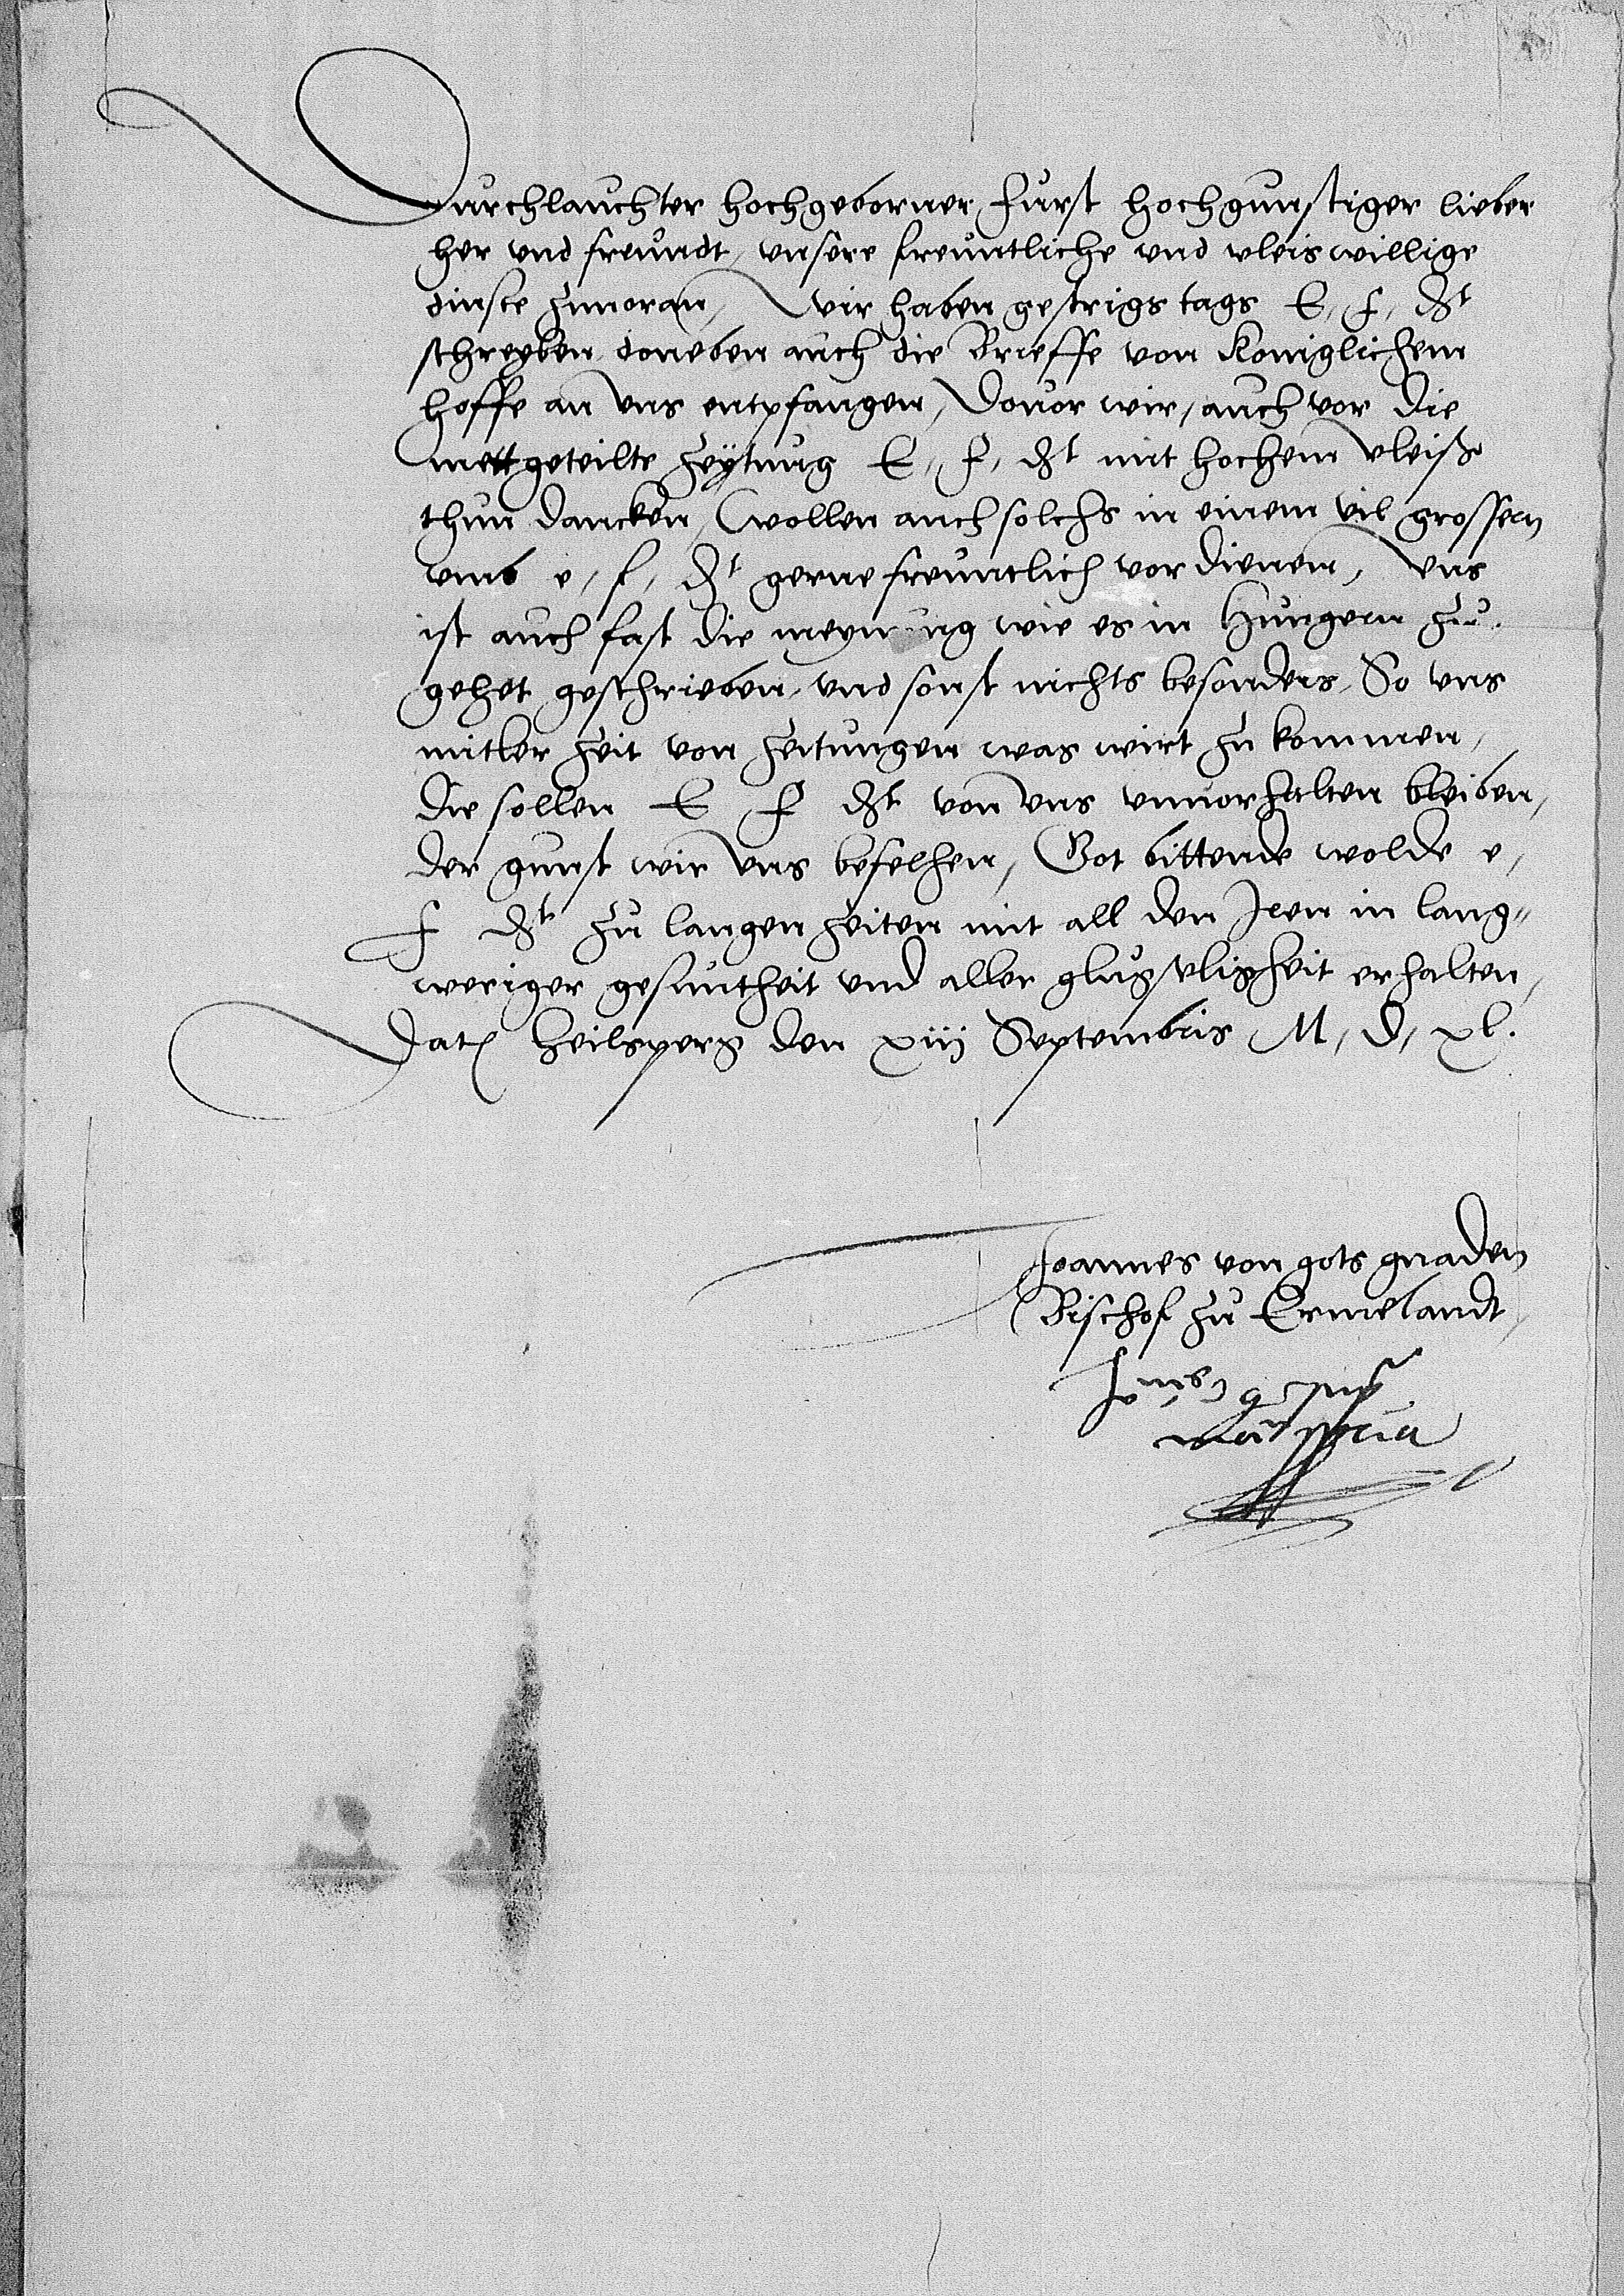 Durchlauchter hochgeborner furst hochgunstiger lieber
her und freundt, unsere freuntliche und vleiswillige
dinste zuvoran, Wir haben gestrigs tags E, f, dt
schreyben doneben auch die Brieffe von Koniglichem
hoffe an uns entpfangen, Dovor wir, auch vor die
mettgeteilte zeytung E, f, dt mit hochem vleiße
thun dancken, Wollen auch solchs in einem vil grossern
umb e, f, dt gerne freuntlich vordienen, Uns
ist auch fast die meynung wie es in Hungern zu
gehet geschrieben, und sonst nichts besonders, So uns
mitler zeit von zeitungen was wirt zu kommen,
die sollen E f dt von uns unvorhalten bleiben,
der gunst wir uns befelhen, Got bittende wolde e,
f dt zu langen zeiten mit all den Iren in lang=
weriger gesuntheit und aller glugseligheit erhalten,
Dat Heilsperg den xiij Septembris M, D, xl.
Joannes von gots gnaden
Bischof zu Ermelandt,
manu propria